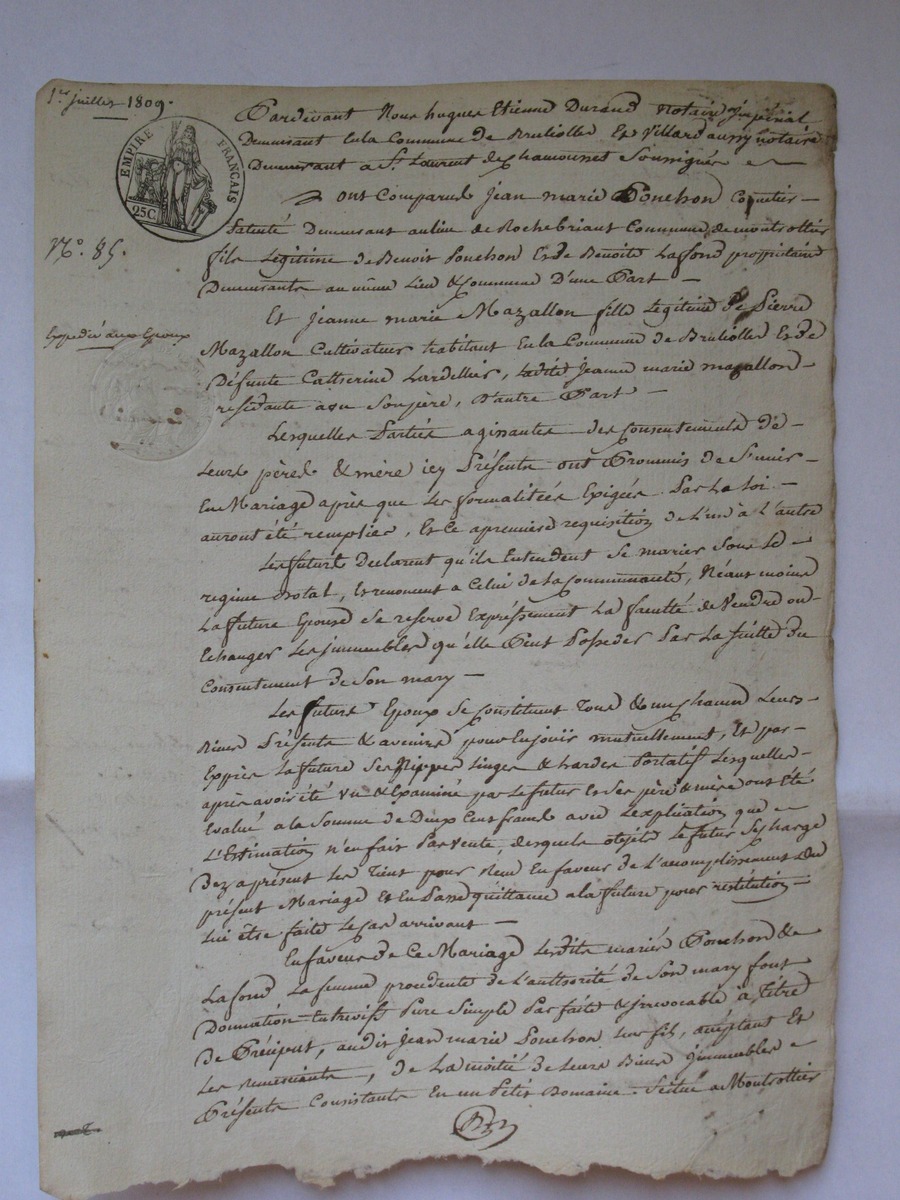 1er juillet 1809.
EMPIRE FRANÇAIS
25C
N° 85.
Expedié aux Epoux
Pardevant Nous hugues Etienne Durand notaire Imperial
Demeurant en la Commune de Brullolle Et Villard aussy notaire
Demeurant a St Laurent de Chamousset Soussignés
ont Comparus Jean marie Ponchon Coquetier
Patenté Demeurant au lieu de Rochebriant Commune de montrottier
fils Légitime de Benoit Ponchon Et de Benoite Lafond propriétaire
Demeurants au même Lieu & Commune D'une Part
Et Jeanne marie Mazallon fille Légitime de Pierre
Mazallon Cultivateur habitant En la Commune de Brullolle Et de
Défunte Catherine Lardellier, Ladite Jeanne marie mazallon
residante a son père, D'autre Part
Lesquelles Parties agissantes des Consentements de
Leurs pères & mère icy Présents ont Prommis de S'unir
En Mariage après que les formalitées Exigées Par La Loi
auront été remplies, Et Ce a première requisition de L'un a L'autre
Les futurs Declarent qu'ils Entendent Se marier Sous Le
regime Dotal, Et renoncent a Celui de la Communauté, Néant moins
La future Epouse Se reserve Expréssement La faculté de Vendre ou
Echanger Les immeubles qu'elle Peut Posseder Par La Suitte du
Consentement de Son mary
Les futurs Epoux Se Constituent Tous & un Chacun Leurs
Biens Présents & avenirs pour En jouir mutuellement, Et par
Exprès La future Ses Nippes Linges & hardes Portatifs Lesquelles
après avoir été Vu & Examiné par Le futur Et Ses père & mère ont Eté
Evalué a la Somme de Deux Cent francs avec L'explication que
L'Estimation n'en fait Pas Vente, desquels objets Le futur Se Charge
Dez a présent Les Tient pour Reçu En faveur de L'accomplissement du
présent Mariage Et En Passe quittance a la future pour restitution
lui être faite Le Cas arrivant
En faveur de Ce Mariage Lesdits mariés Ponchon &
Lafond La femme procedente de L'authorité de Son mary font
Donnation Entrevifs Pure Simple Parfaite & irrevocable a Titre
de Préciput, audit Jean marie Ponchon Leur fils, acceptant Et
Les remerciants, de La moitié de Leurs Biens immeubles
Présents Consistants En un Petit Domaine Scitué a Montrottier